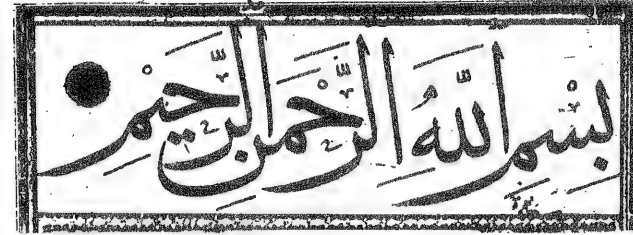 بِسْمِ اللَّهِ الرَّحْمنِ الرَّحِيمِ